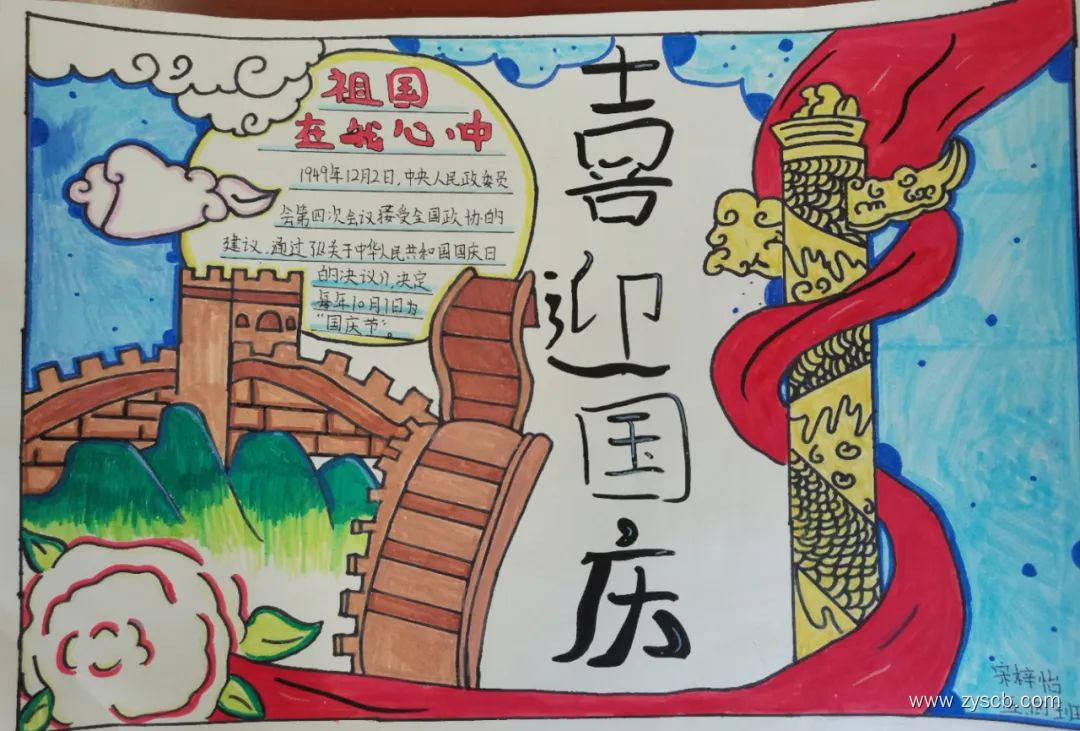 祖国
在我心中
1949年12月2日,中央人民政委员
会第四次会议接受全国政协的
建议,通过了《关于中华人民共和国国庆日
的决议》,决定
每年10月1日为
“国庆节”。
喜迎国庆
宋梓怡
www.zyscb.com